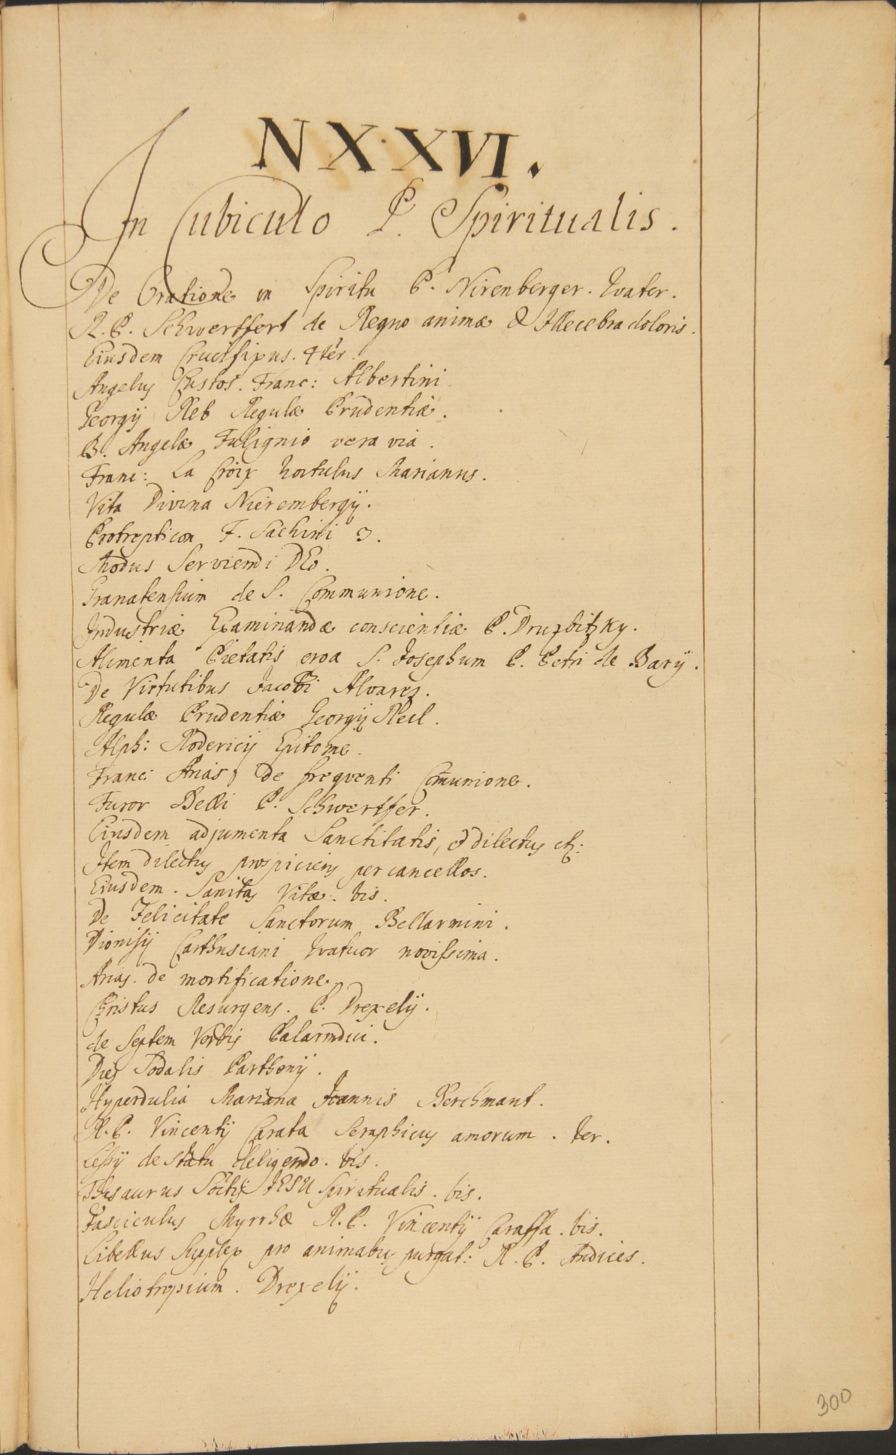 NXXVI.
In Cubiculo P. Spiritualis.
De Oratione in Spiritu P. Nirenberger. Quater.
R. P. Schwertfert de Regno animæ & Illecebra doloris.
Eiusdem Crucifixus. 4ter.
Angelus Custos. Franc: Albertini.
Georgij Reb Regulæ Prudentiæ.
B. Angelæ Fulignio vera via.
Franc: La Croix hortulus Marianus.
Vita Divina Nierembergij.
Protrepticon F. Sachini 3.
Modus Serviendi DEo.
Granatensium de S. Communione.
Industriæ Examinandæ conscientiæ P. Druzbitzky.
Alimenta Pietatis erga S. Josephum P. Petri de Barÿ.
De Virtutibus Jacobi Alvarez.
Regulæ Prudentiæ Georgij Reel.
Alph: Roderici Epitome.
Franc: Arias, De frequenti Comunione.
Furor Belli P. Schwertfer.
Eiusdem adjumenta Sanctitatis, et dilectus etc:
Item dilectus prospiciens per cancellos.
Eiusdem. Sanitas Vitæ. bis.
De Felicitate Sanctorum Bellarmini.
Dionisij Carthusiani Quatuor novissima.
Arias. de mortificatione.
Cristus Resurgens. P. Drexelij.
de Septem Verbis
Dies Sodalis Parthenij.
Hyperdulia Mariana Joannis Berchmant.
R. P. Vincentij Carafa Seraphicus amorum. ter.
Lesij de Statu deligendo. bis.
Thesaurus Soctis JESU Spiritualis. bis.
Fasciculus Myrrhæ R. P. Vincentij Caraffa. bis.
Libellus Supplex pro animabus purgat: R. P. Andries.
Heliotropium. Drexelij.
300